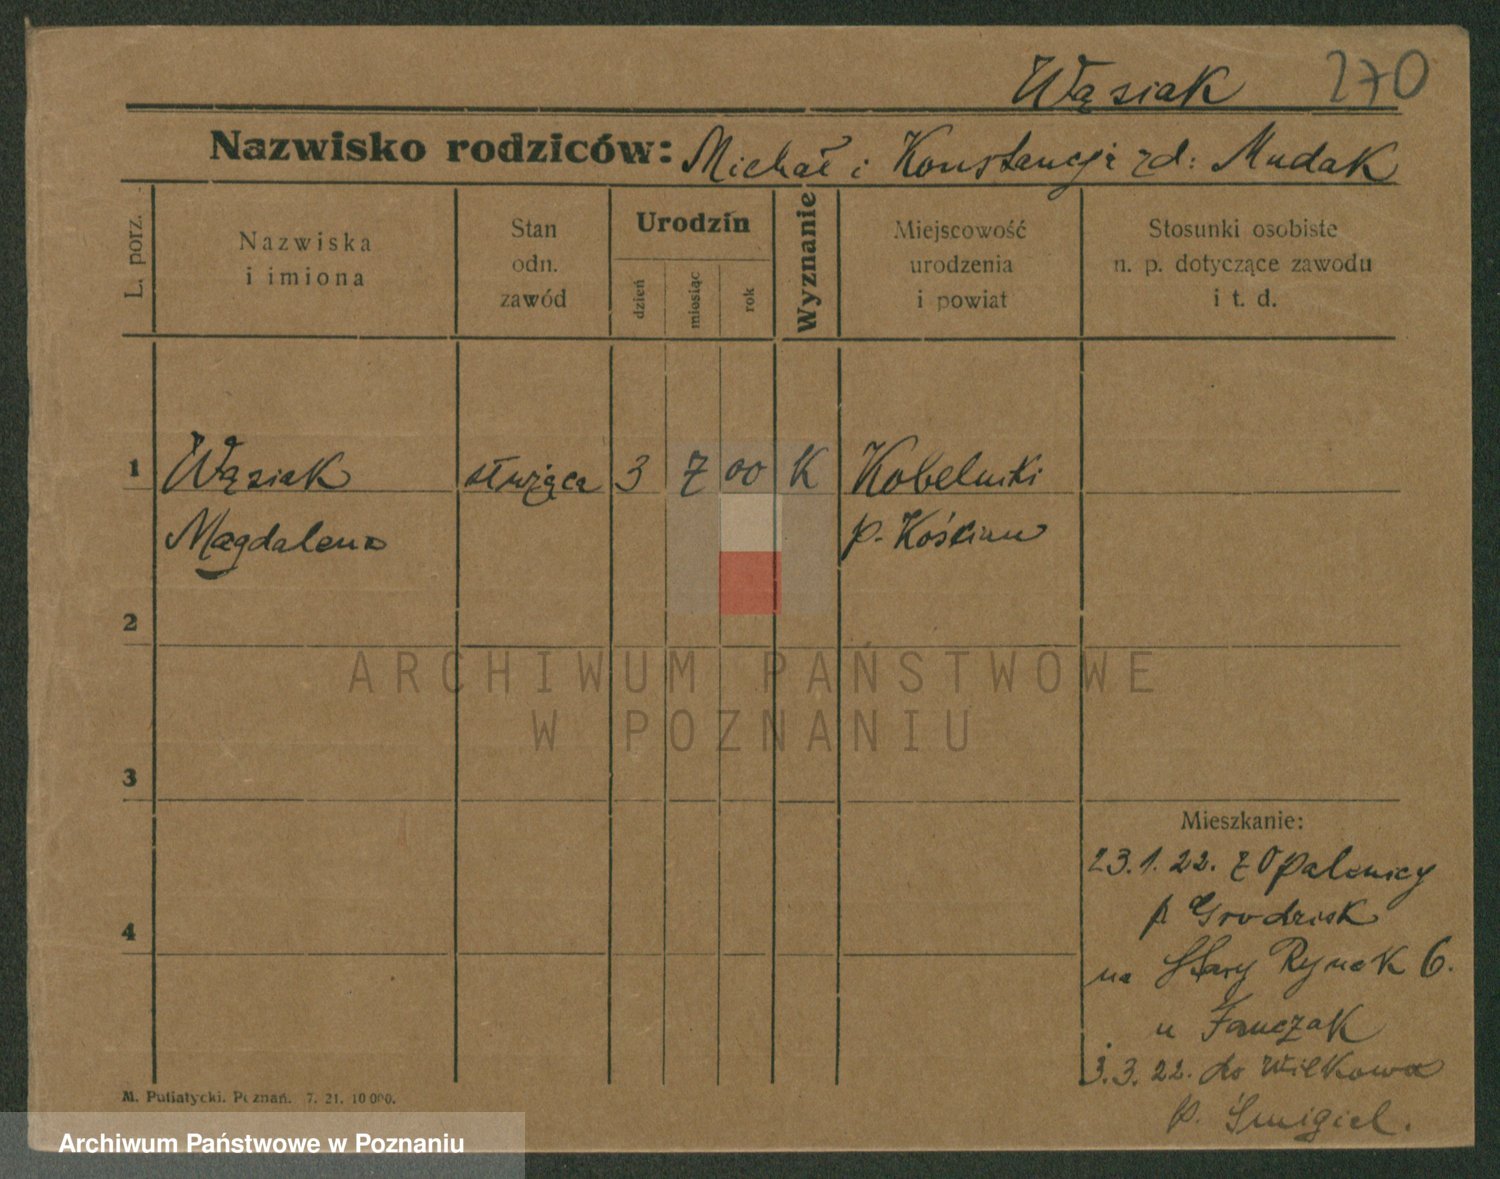 Wąsiak 270
Nazwisko rodziców: Michał i Konstancja zd: Mudak
L. porz.
Nazwiska
i imiona
Stan
odn.
zawód
Urodzin
dzień
miesiąc
rok
Wyznanie
Miejscowość
urodzenia
i powiat
Stosunki osobiste
n. p. dotyczące zawodu
i t. d.
1 Wąsiak służąca 3 7 00 K Kobelniki
Magdalena p. Kościan
2
ARCHIWUM PAŃSTWOWE
W POZNANIU
3
Mieszkanie:
23.1.22. z Opalenicy
p Grodzisk
4
na Stary Rynek 6.
u Janczak
3.3.22. do Wilkowa
M. Putiatycki. Poznań. 7. 21. 10 000.
p. Śmigiel.
Archiwum Państwowe w Poznaniu